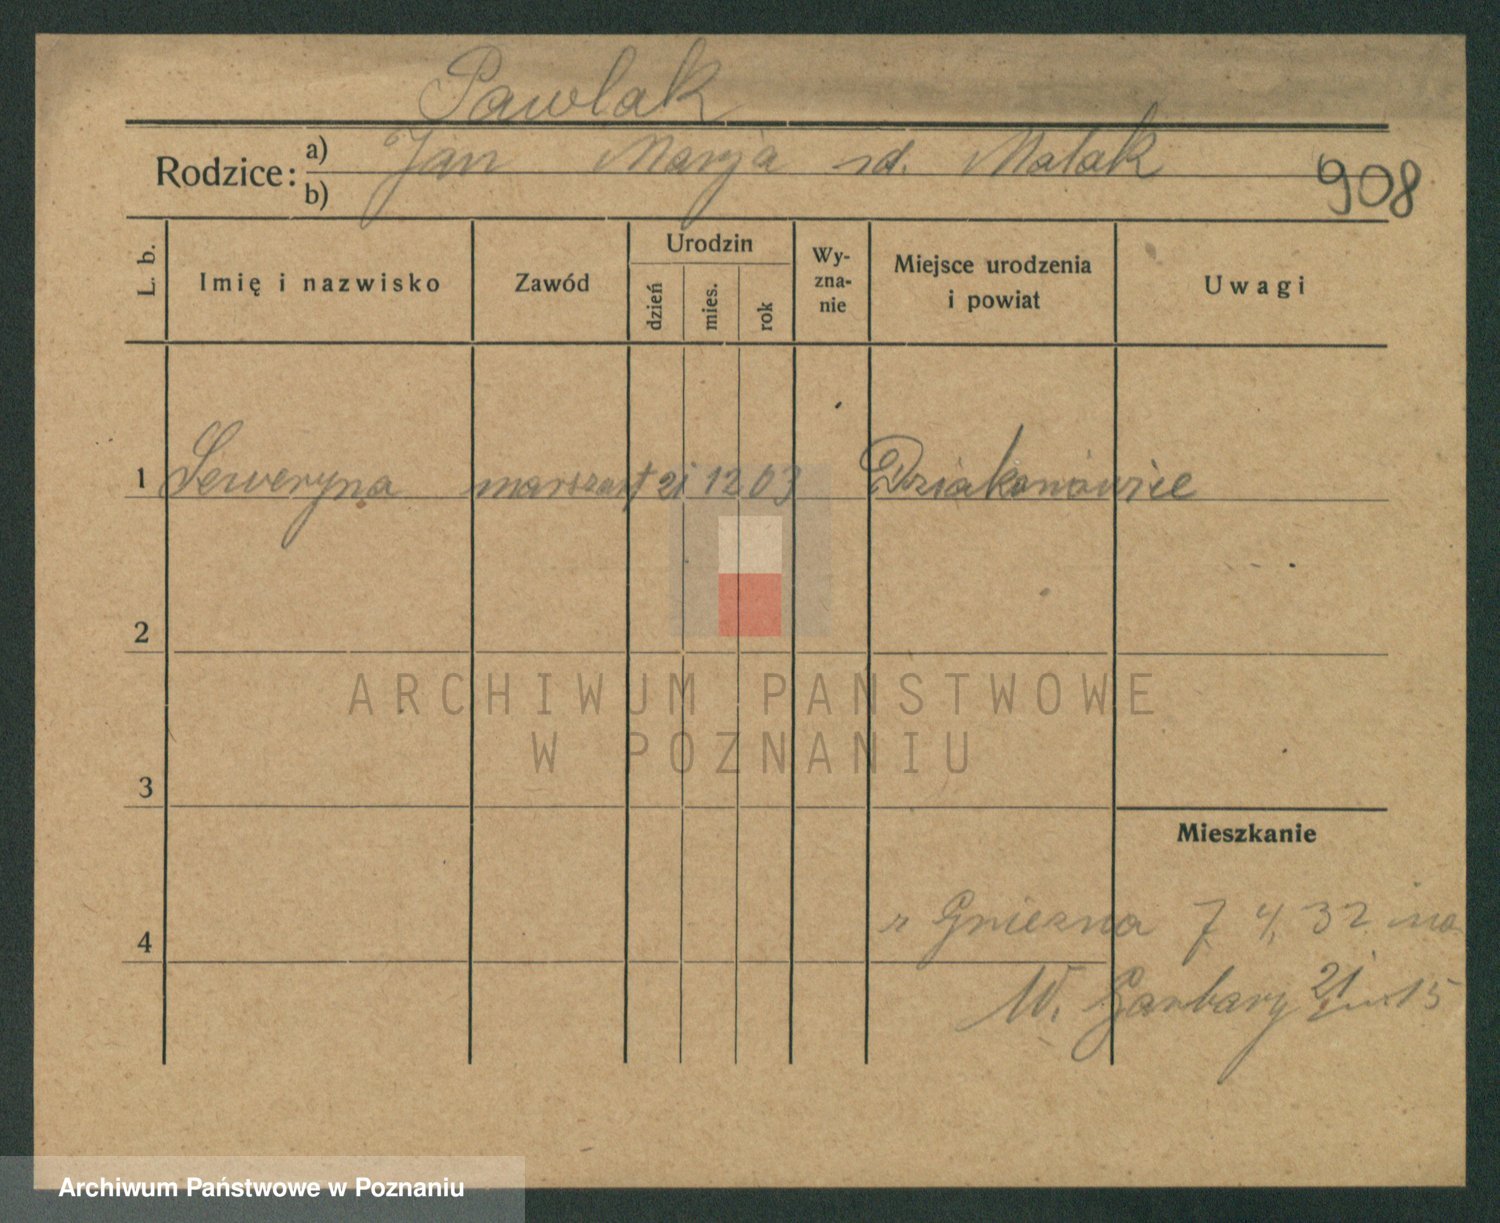 Pawlak
Rodzice: a) Jan Marja zd. Matak
b)
908
L. b.
Imię i nazwisko
Zawód
Urodzin
dzień
mies.
rok
Wy-
zna-
nie
Miejsce urodzenia
i powiat
Uwagi
1 Seweryna 21 12 03 Dziakanowice
2
ARCHIWUM PAŃSTWOWE
W POZNANIU
3
Mieszkanie
z Gniezna 7 4. 32 na
4
W. Garbary 21 15
Archiwum Państwowe w Poznaniu